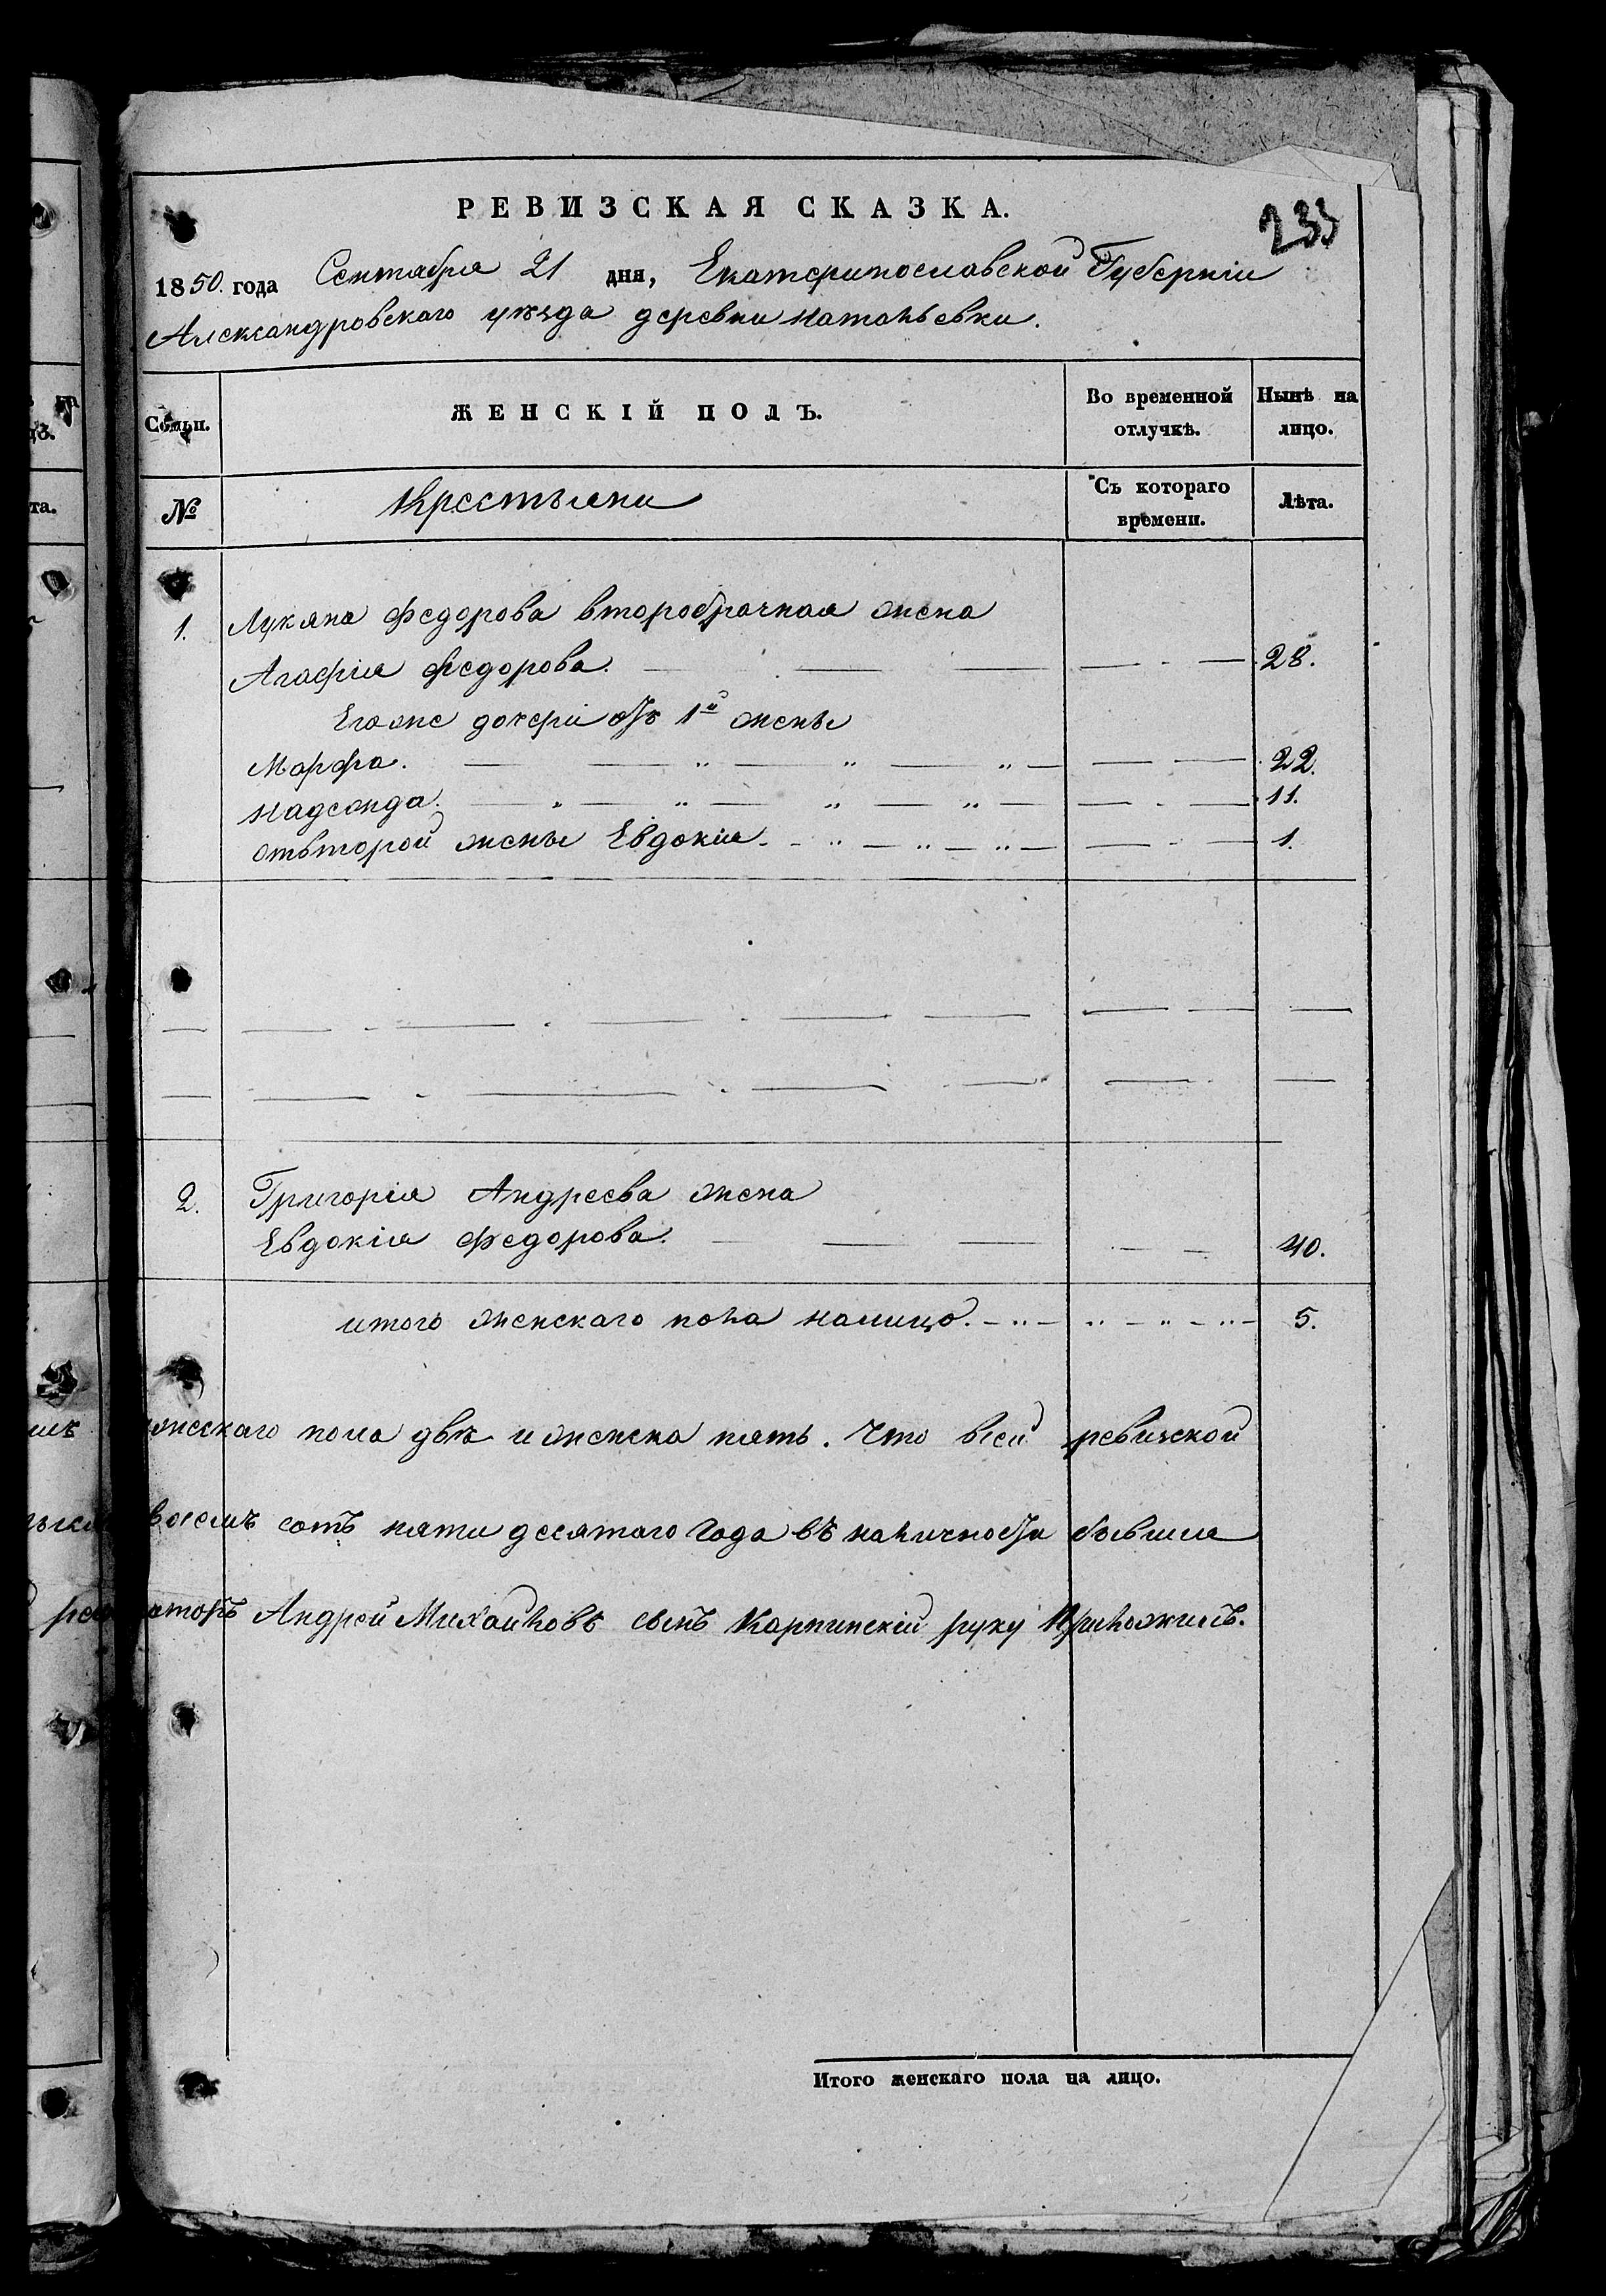 233
РЕВИЗСКАЯ СКАЗКА.
1850. года Сентября 21 дня, Екатеринославской Губерніи
Александровскаго уѣзда деревни Натальевки.
Семьи.
ЖЕНСКІЙ ПОЛЪ.
Во временной отлучкѣ.
Нынѣ на лицо.
№
Крестьяни
Съ котораго времени.
Лѣта.
1. Лукяна Федорова второбрачная жена
Агафія Федорова. 28.
Егоже дочери отъ 1й жены
Марфа. 22.
Надежда. 11.
отвторой жены Евдокія. 1.
2. Григорія Андреева жена
Евдокія Федорова. 40.
итого женскаго пола налицо. 5.
пола двѣ и женска пять. Что всей ревизской
восемъ сотъ пяти десятаго Года въ наличности бывшия
Андрей Михайловъ сынъ Карпинскій руку Приложилъ.
Итого женскаго пола на лицо.